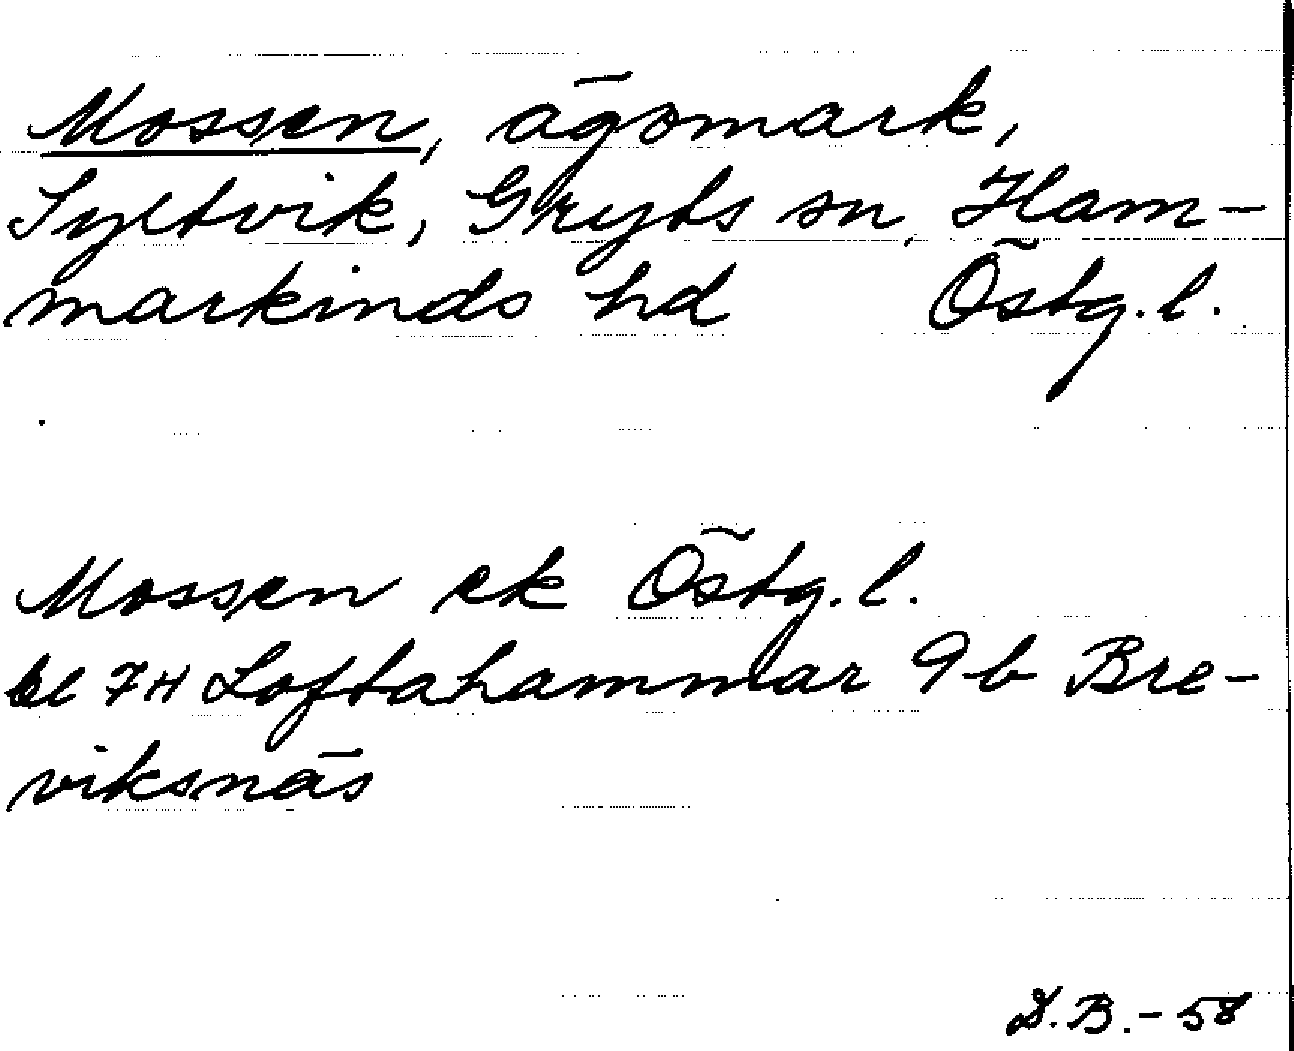 Mossen, ägomark,
Syltvik, Gryts sn, Ham-
markinds hd Östg. l.
Mossen ek Östg. l.
bl 7H Loftahammar 9b Bre-
viksnäs
D.B.-58